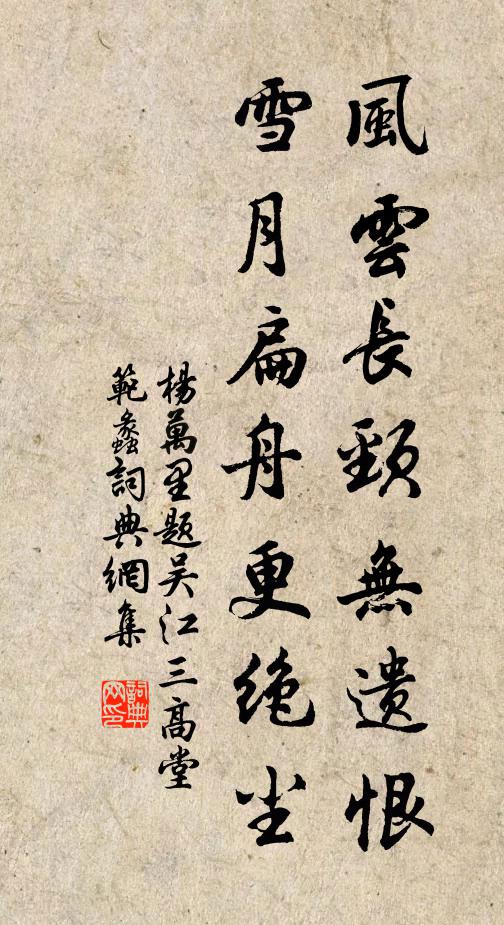 風雲長頸無遗恨
雪月扁舟更绝尘
楊萬里題吴江三高堂
範蠡詞典網集
詞典網印